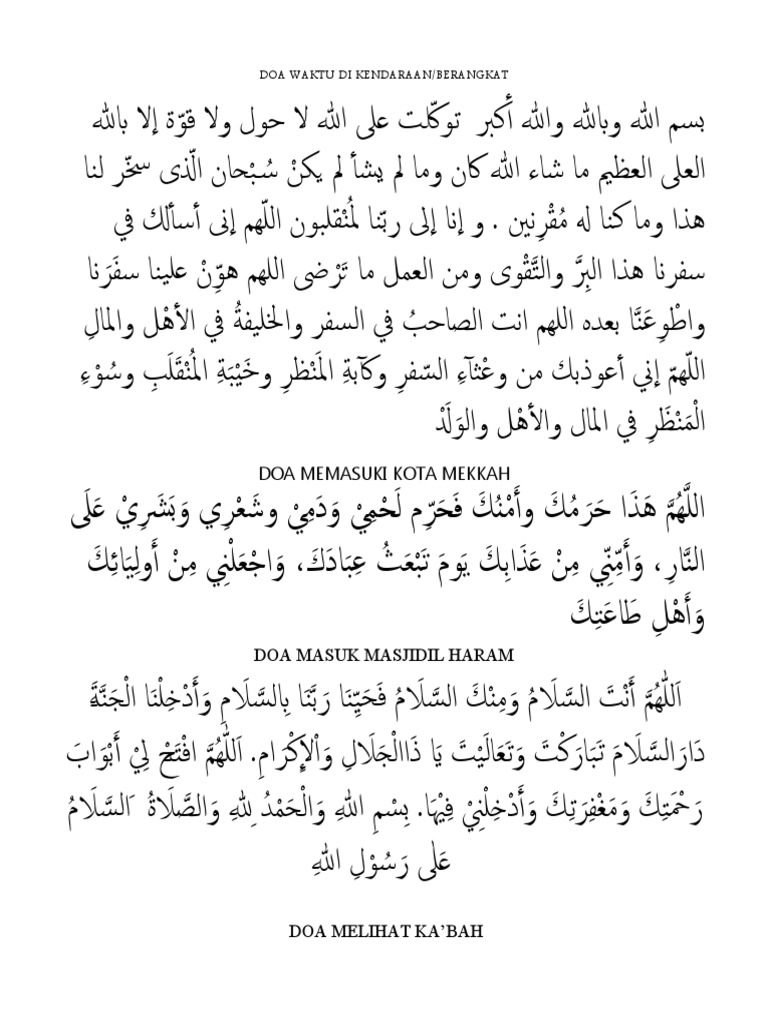 DOA WAKTU DI KENDARAAN/BERANGKAT
بسم الله وبالله والله أكبر توكّلت على الله لا حول ولا قوّة إلا بالله
العلى العظيم ما شاء الله كان وما لم يشأ لم يكنْ سُبْحان الّذى سخّر لنا
هذا وما كنا له مُقْرِنين . و إنا إلى ربّنا لمُنْقلبون اللّهم إنى أسألك في
سفرنا هذا البِرَّ والتَّقْوى ومن العمل ما تَرْضى اللهم هوِّنْ علينا سفَرَنا
واطْوِعَنَّا بعده اللهم انت الصاحبُ في السفر والخليفةُ في الأهْل والمالِ
اللّهمّ إني أعوذبك من وعْثآءِ السّفرِ وكآبةِ المَنْظرِ وخَيْبَةِ المُنْقَلَبِ وسُوْءِ
الْمَنْظَرِ في المال والأهْل والوَلَدْ
DOA MEMASUKI KOTA MEKKAH
اللَّهُمَّ هَذَا حَرَمُكَ وأَمْنُكَ فَحَرِّم لَحْمِيْ وَدَمِيْ وشَعْرِي وَبَشَرِيْ عَلَى
النَّارِ، وَأَمِّنِّي مِنْ عَذَابِكَ يَومَ تَبْعَثُ عِبَادَكَ، وَاجْعَلْنِي مِنْ أَولِيَائِكَ
وَأَهْلِ طَاعَتِكَ
DOA MASUK MASJIDIL HARAM
اَللّٰهُمَّ أَنْتَ السَّلَامُ وَمِنْكَ السَّلَامُ فَحَيِّنَا رَبَّنَا بِالسَّلَامِ وَأَدْخِلْنَا الْجَنَّةَ
دَارَالسَّلَامَ تَبَارَكْتَ وَتَعَالَيْتَ يَا ذَاالْجَلَالِ وَاْلإِكْرَامِ. اَللّٰهُمَّ افْتَحْ لِيْ أَبْوَابَ
رَحْمَتِكَ وَمَغْفِرَتِكَ وَأَدْخِلْنِيْ فِيْهَا. بِسْمِ اللهِ وَالْحَمْدُ لِلهِ وَالصَّلَاةُ َالسَّلَامُ
عَلٰى رَسُوْلِ اللهِ
DOA MELIHAT KA’BAH